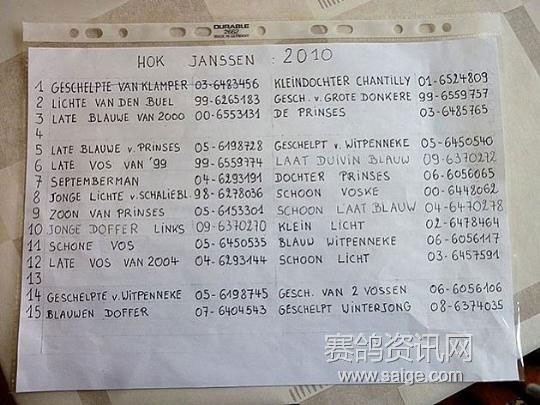 DURABLE
2662
HOK JANSSEN : 2010
1 GESCHELPTE VAN KLAMPER 03-6483456 KLEINDOCHTER CHANTILLY 01-6524809
2 LICHTE VAN DEN BUEL 99-6265183 GESCH. v. GROTE DONKERE 99-6559757
3 LATE BLAUWE VAN 2000 00-6553131 DE PRINSES 03-6485765
4
5 LATE BLAUWE v. PRINSES 05-6198728 GESCHELPT v. WITPENNEKE 05-6450540
6 LATE VOS VAN '99 99-6559774 LAAT DUIVIN BLAUW 09-6370272
7 SEPTEMBERMAN 04-6293191 DOCHTER PRINSES 06-6056065
8 JONGE LICHTE v. SCHALIEBL. 98-6278036 SCHOON VOSKE 00-6448062
9 ZOON VAN PRINSES 05-6153301 SCHOON LAAT BLAUW 04-6470278
10 JONGE DOFFER LINKS 09-6370270 KLEIN LICHT 02-6478464
11 SCHONE VOS 05-6450535 BLAUW WITPENNEKE 06-6056117
12 LATE VOS VAN 2004 04-6293144 SCHOON LICHT 03-6457591
13
14 GESCHELPTE v. WITPENNEKE 05-6198745 GESCH. VAN 2 VOSSEN 06-6056106
15 BLAUWEN DOFFER 07-6404543 GESCHELPT WINTERJONG 08-6374035
赛鸽资讯网
www.saige.com